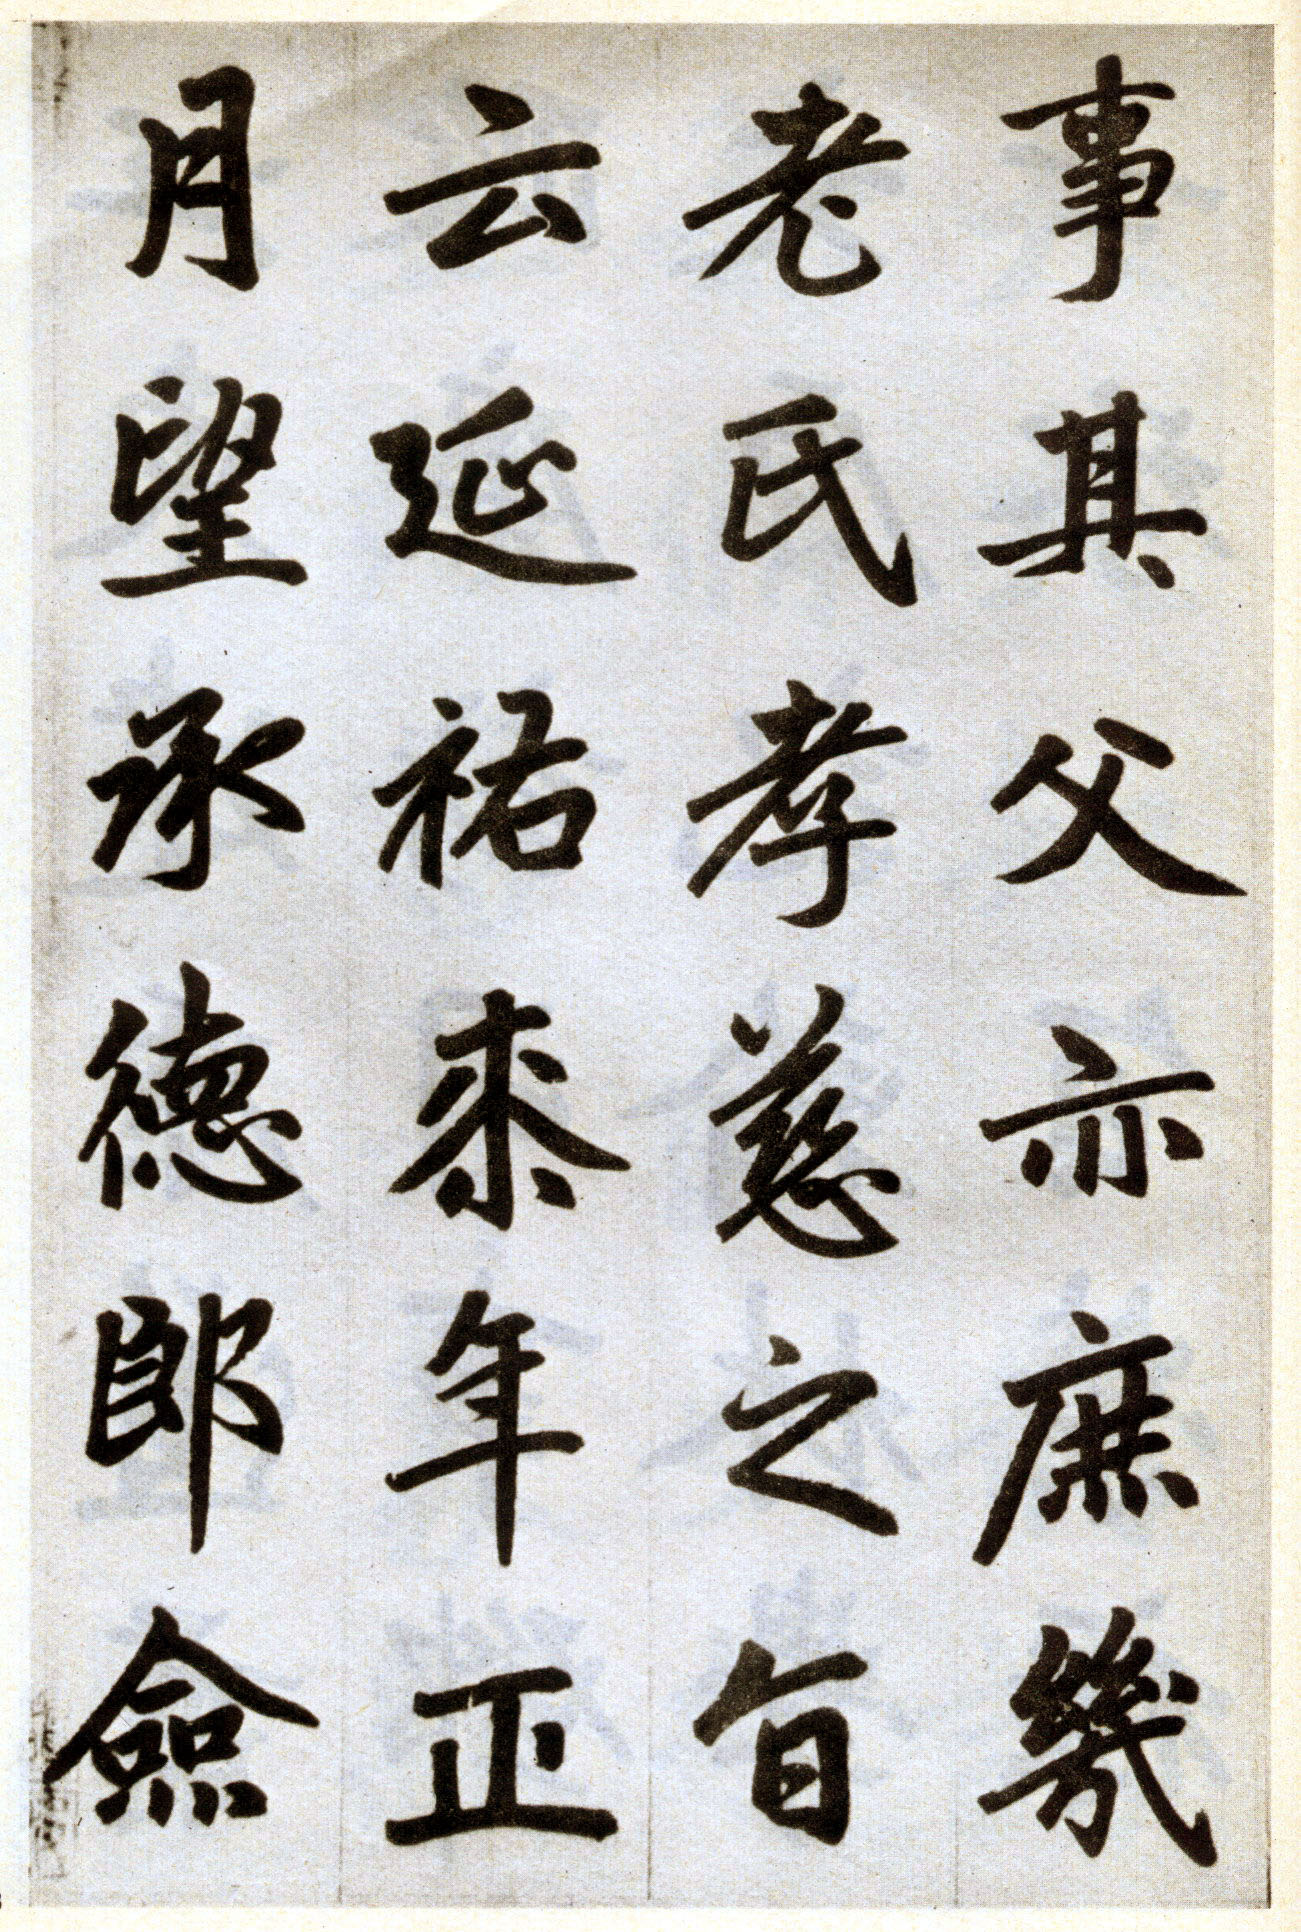 事其父亦庶幾
老氏孝慈之旨
云延祐柰年正
月望承德郎僉